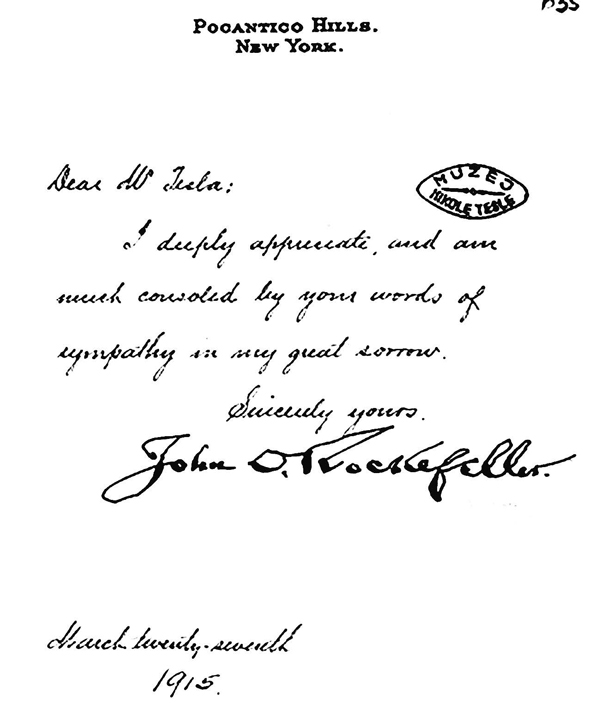 B35
POCANTICO HILLS.
NEW YORK.
Dear Mr Tesla:
MUZEJ
NIKOLE TESLE
I deeply appreciate, and am
much consoled by your words of
sympathy in my great sorrow.
Sincerely yours.
John D. Rockefeller.
March twenty-seventh
1915.